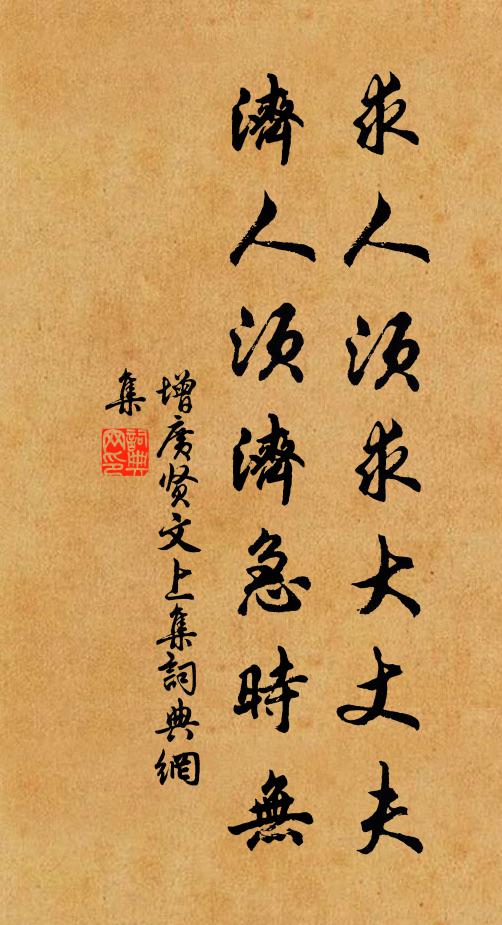 求人須求大丈夫
濟人須濟急時無
增廣贤文上集詞典網
集
詞典
网印